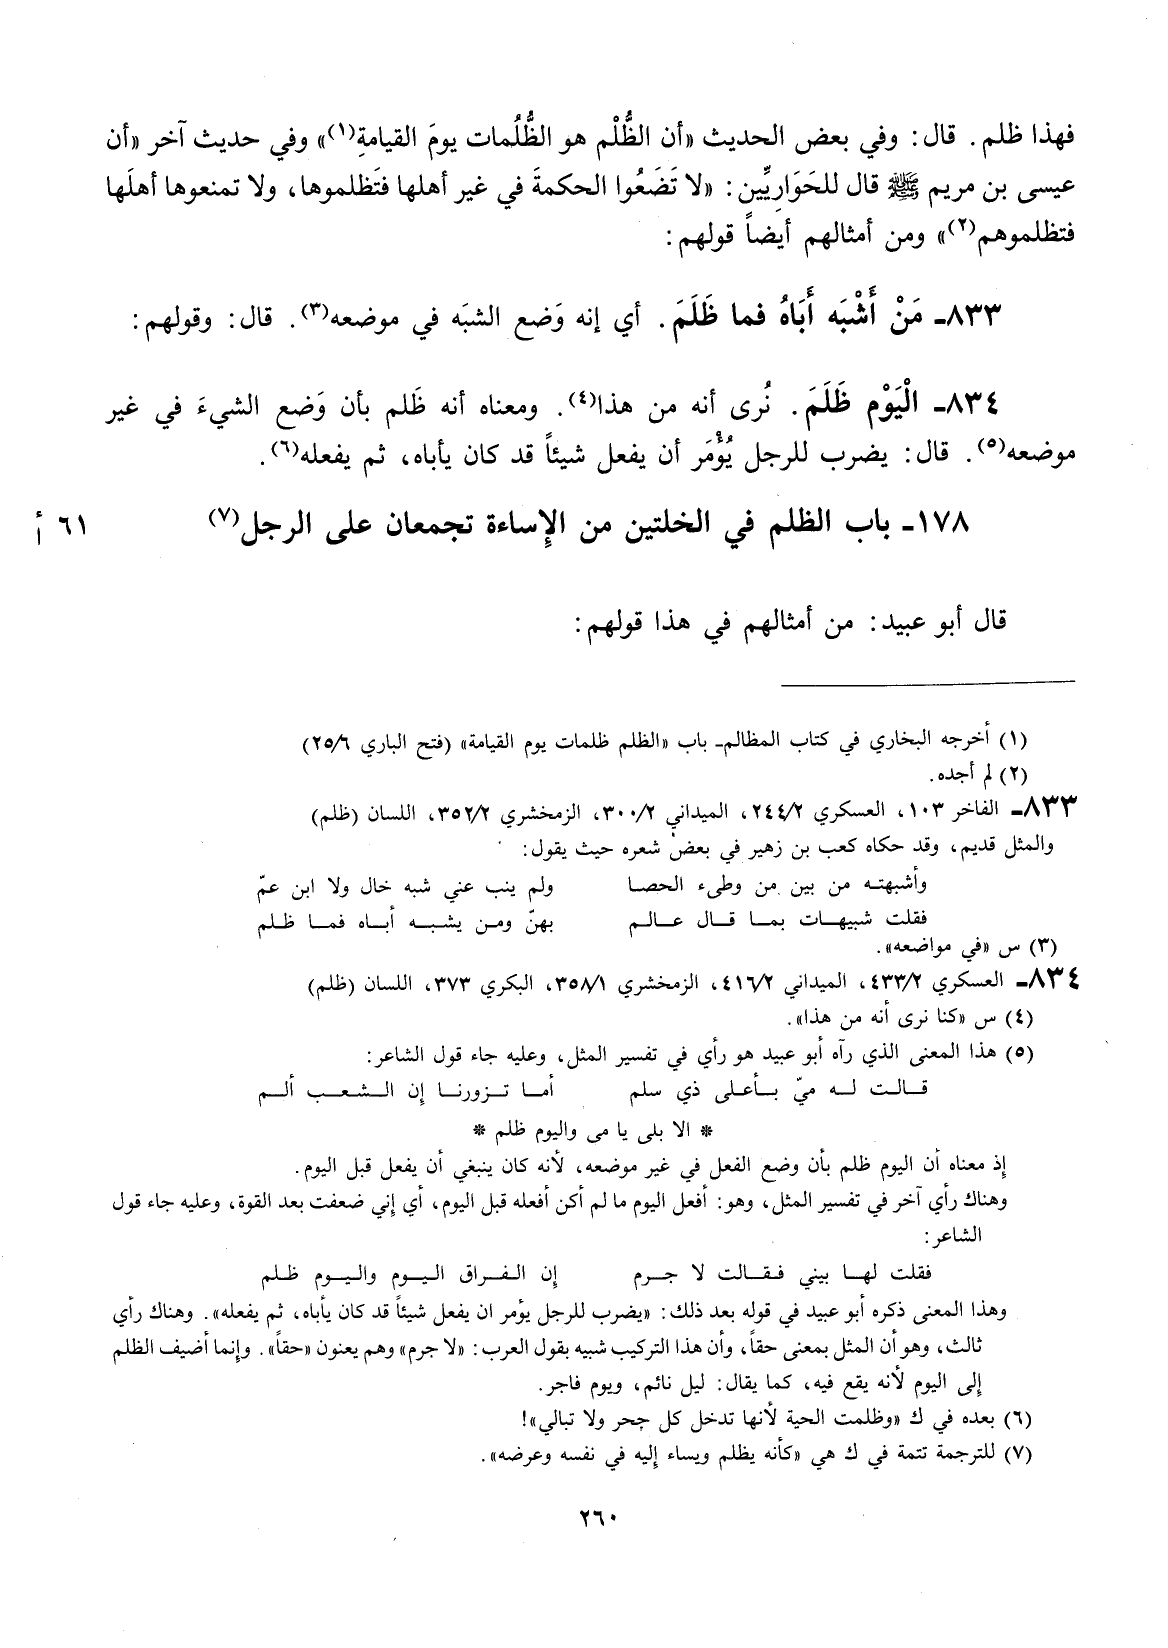 فهذا ظلم. قال: وفي بعض الحديث «أن الظُّلْم هو الظُّلُمات يومَ القيامةِ(١)» وفي حديث آخر «أن
عيسى بن مريم ﷺ قال للحَوَارِيِّين: «لا تَضَعُوا الحكمةَ في غير أهلها فتَظلموها، ولا تمنعوها أهلَها
فتظلموهم(٢)» ومن أمثالهم أيضاً قولهم:
٨٣٣ـ مَنْ أَشْبَه أَبَاهُ فما ظَلَمَ. أي إنه وَضع الشبَه في موضعه(٣). قال: وقولهم:
٨٣٤ـ الْيَوْم ظَلَمَ. نُرى أنه من هذا(٤). ومعناه أنه ظَلم بأن وَضع الشيءَ في غير
موضعه(٥). قال: يضرب للرجل يُؤْمَر أن يفعل شيئاً قد كان يأباه، ثم يفعله(٦).
١٧٨ـ باب الظلم في الخلتين من الإساءة تجمعان على الرجل(٧)
٦١ أ
قال أبو عبيد: من أمثالهم في هذا قولهم:
(١) أخرجه البخاري في كتاب المظالم- باب «الظلم ظلمات يوم القيامة» (فتح الباري ٢٥/٦)
(٢) لم أجده.
٨٣٣ـ الفاخر ١٠٣، العسكري ٢٤٤/٢، الميداني ٣٠٠/٢، الزمخشري ٣٥٢/٢، اللسان (ظلم)
والمثل قديم، وقد حكاه كعب بن زهير في بعض شعره حيث يقول:
وأشبهته من بين من وطىء الحصا ولم ينب عني شبه خال ولا ابن عمّ
فقلت شبيهات بما قال عالم بهنّ ومن يشبه أباه فما ظلم
(٣) س «في مواضعه».
٨٣٤ـ العسكري ٤٣٣/٢، الميداني ٤١٦/٢، الزمخشري ٣٥٨/١، البكري ٣٧٣، اللسان (ظلم)
(٤) س «كنا نرى أنه من هذا».
(٥) هذا المعنى الذي رآه أبو عبيد هو رأي في تفسير المثل، وعليه جاء قول الشاعر:
قالت له ميّ بأعلى ذي سلم أما تزورنا إن الشعب ألم
* الا بلى يا مى واليوم ظلم *
إذ معناه أن اليوم ظلم بأن وضع الفعل في غير موضعه، لأنه كان ينبغي أن يفعل قبل اليوم.
وهناك رأي آخر في تفسير المثل، وهو: أفعل اليوم ما لم أكن أفعله قبل اليوم، أي إني ضعفت بعد القوة، وعليه جاء قول
الشاعر:
فقلت لها بيني فقالت لا جرم إن الفراق اليوم واليوم ظلم
وهذا المعنى ذكره أبو عبيد في قوله بعد ذلك: «يضرب للرجل يؤمر ان يفعل شيئاً قد كان يأباه، ثم يفعله». وهناك رأي
ثالث، وهو أن المثل بمعنى حقاً، وأن هذا التركيب شبيه بقول العرب: «لا جرم» وهم يعنون «حقاً». وإنما أضيف الظلم
إلى اليوم لأنه يقع فيه، كما يقال: ليل نائم، ويوم فاجر.
(٦) بعده في ك «وظلمت الحية لأنها تدخل كل جحر ولا تبالي»!
(٧) للترجمة تتمة في ك هي «كأنه يظلم ويساء إليه في نفسه وعرضه».
٢٦٠